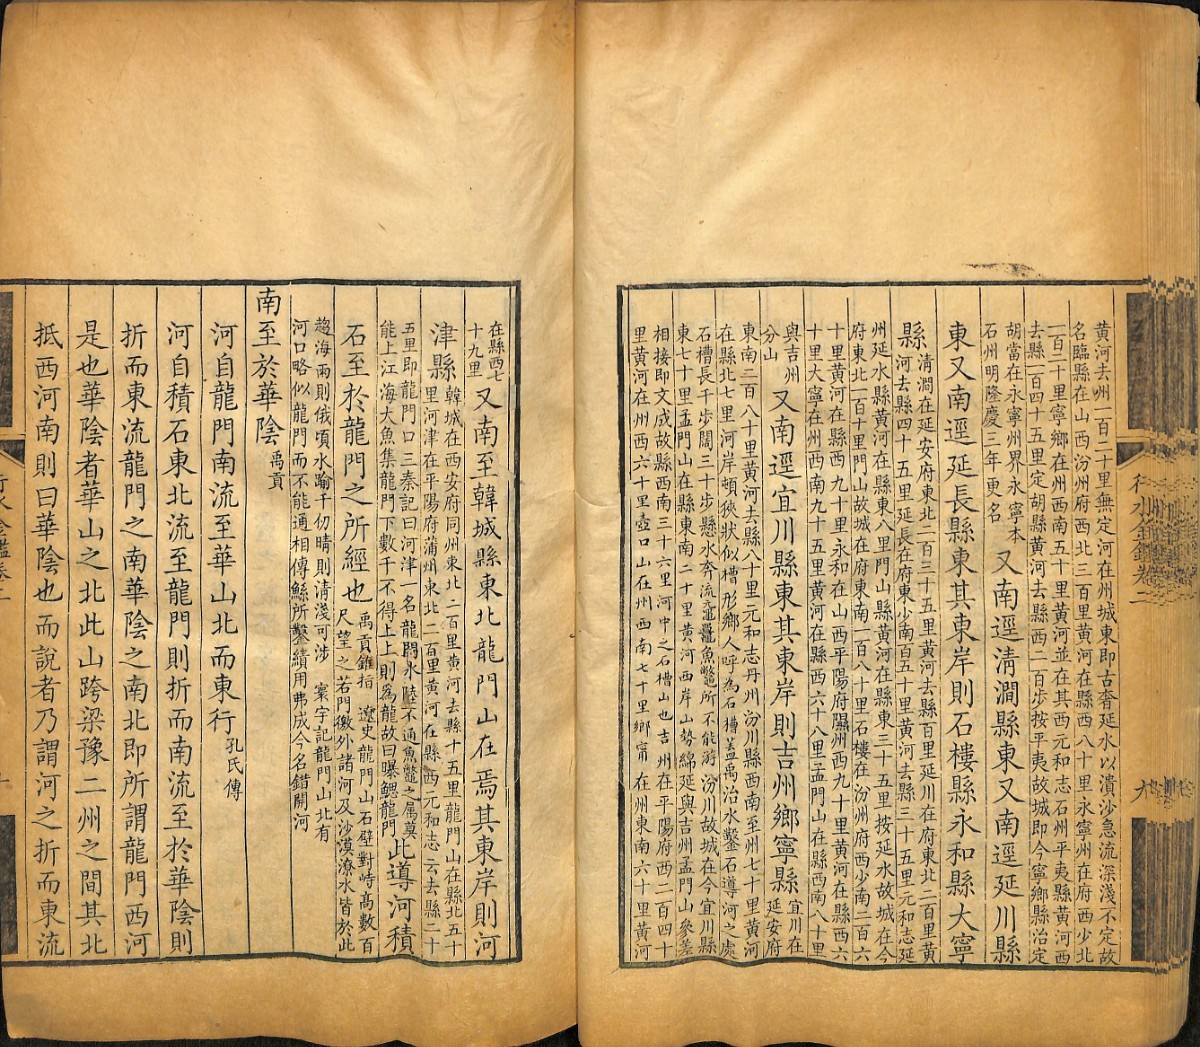 黃河去州一百二十里無定河在州城東即古奢延水以潰沙急流深淺不定故
名臨縣在山西汾州府西北三百里黃河在縣西八十里永寧州在府西少北
一百六十里寧鄉在州西南五十里黃河並在其西元和志石州平夷縣黃河西
去縣一百四十五里定胡縣黃河去縣西二百步按平夷故城即今寧鄉縣治定
胡當在永寧州界永寧本
石州明隆慶三年更名
又南逕淸澗縣東又南逕延川縣
東又南逕延長縣東其東岸則石樓縣永和縣大寧
縣
淸澗在延安府東北二百三十五里黃河去縣百里延川在府東北二百里黃
河去縣四十五里延長在府東少南百五十里黃河去縣三十五里元和志延
州延水縣黃河在縣東八里門山縣黃河在縣東三十五里按延水故城在今
府東北一百十里門山故城在府東南一百八十里石樓在汾州府西少南二百六
十里黃河在縣西九十里永和在山西平陽府隰州西九十里黃河在縣西六
十里大寧在州西南九十五里黃河在縣西六十八里孟門山在縣西南八十里
與吉州
分山
又南逕宜川縣東其東岸則吉州鄉寧縣
宜川在
延安府
東南二百八十里黃河去縣八十里元和志丹州汾川縣西南至州七十里黃河
在縣北七里河岸頓狹狀似槽形鄉人呼為石槽蓋禹治水鑿石導河之處
石槽長千步闊三十步懸水奔流黿鼉魚鼈所不能游汾川故城在今宜川縣
東七十里孟門山在縣東南二十里黃河西岸山勢綿延與吉州孟門山參差
相接即文成故縣西南三十六里河中之石槽山也吉州在平陽府西二百四十
里黃河在州西六十里壺口山在州西南七十里鄉甯在州東南六十里黃河
行水金鑑卷二
九
在縣西七
十九里
又南至韓城縣東北龍門山在焉其東岸則河
津縣
韓城在西安府同州東北二百里黃河去縣十五里龍門山在縣北五十
里河津在平陽府蒲州東北二百里黃河在縣西元和志云去縣二十
五里即龍門口三秦記曰河津一名龍門水陸不通魚鼈之屬莫
能上江海大魚集龍門下數千不得上上則為龍故曰曝鰓龍門
此導河積
石至於龍門之所經也
禹貢錐指
遼史龍門山石壁對峙高數百
尺望之若門徼外諸河及沙漠潦水皆於此
趨海雨則俄頃水踰千仞晴則淸淺可涉
寰宇記龍門山北有
河口略似龍門而不能通相傳鯀所鑿績用弗成今名錯開河
南至於華陰
禹貢
河自龍門南流至華山北而東行
孔氏傳
河自積石東北流至龍門則折而南流至於華陰則
折而東流龍門之南華陰之南北即所謂龍門西河
是也華陰者華山之北此山跨梁豫二州之間其北
抵西河南則曰華陰也而說者乃謂河之折而東流